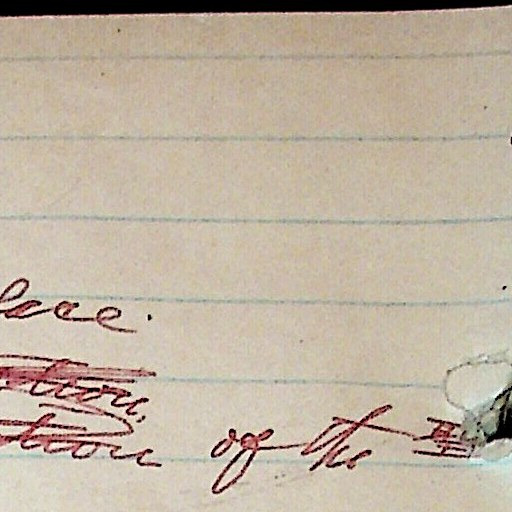 lace.
tion
tion of the